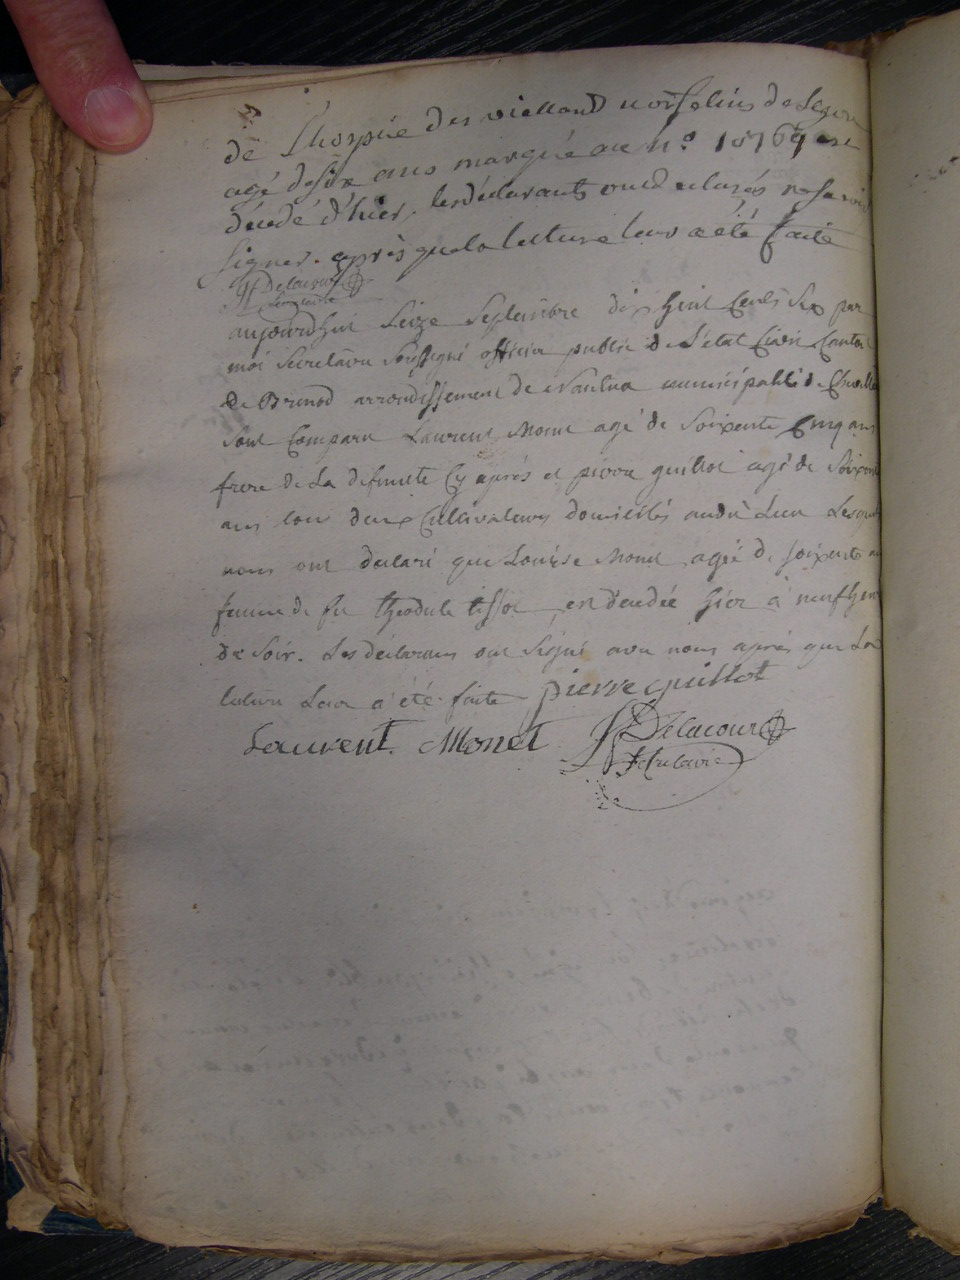 de Lhospice des viellard norselins de Legion
agé desix ans marqué au n.o 18769 est
décédé d'hier, lesdéclarants ont declarés ne savoir
signer. après quela lecture leur a été faite
Delacour
secretaire
aujourdhui Seize Septembre dix huit Cents Six par
moi Secretaire Soussigné officier public de L'état Civil Canton
de Brenod arrondissement de Nantua municipalité de
Sont Comparu Laurent Monet agé de Soixente Cinq ans
frere de La defunte Cy après et pierre guillot agé de Soixente
ans tous deux Cultivateurs domiciliés audit Lieu Lesquels
nous ont declaré que Louise Monet agée de soixente ans
femme de feu théodule tissot, est décédée hier à neuf heures
de Soir. Les déclarans ont signé avec nous après que La
lecture Leur a été faite pierre guillot
Laurent Monet Delacour
Secretaire